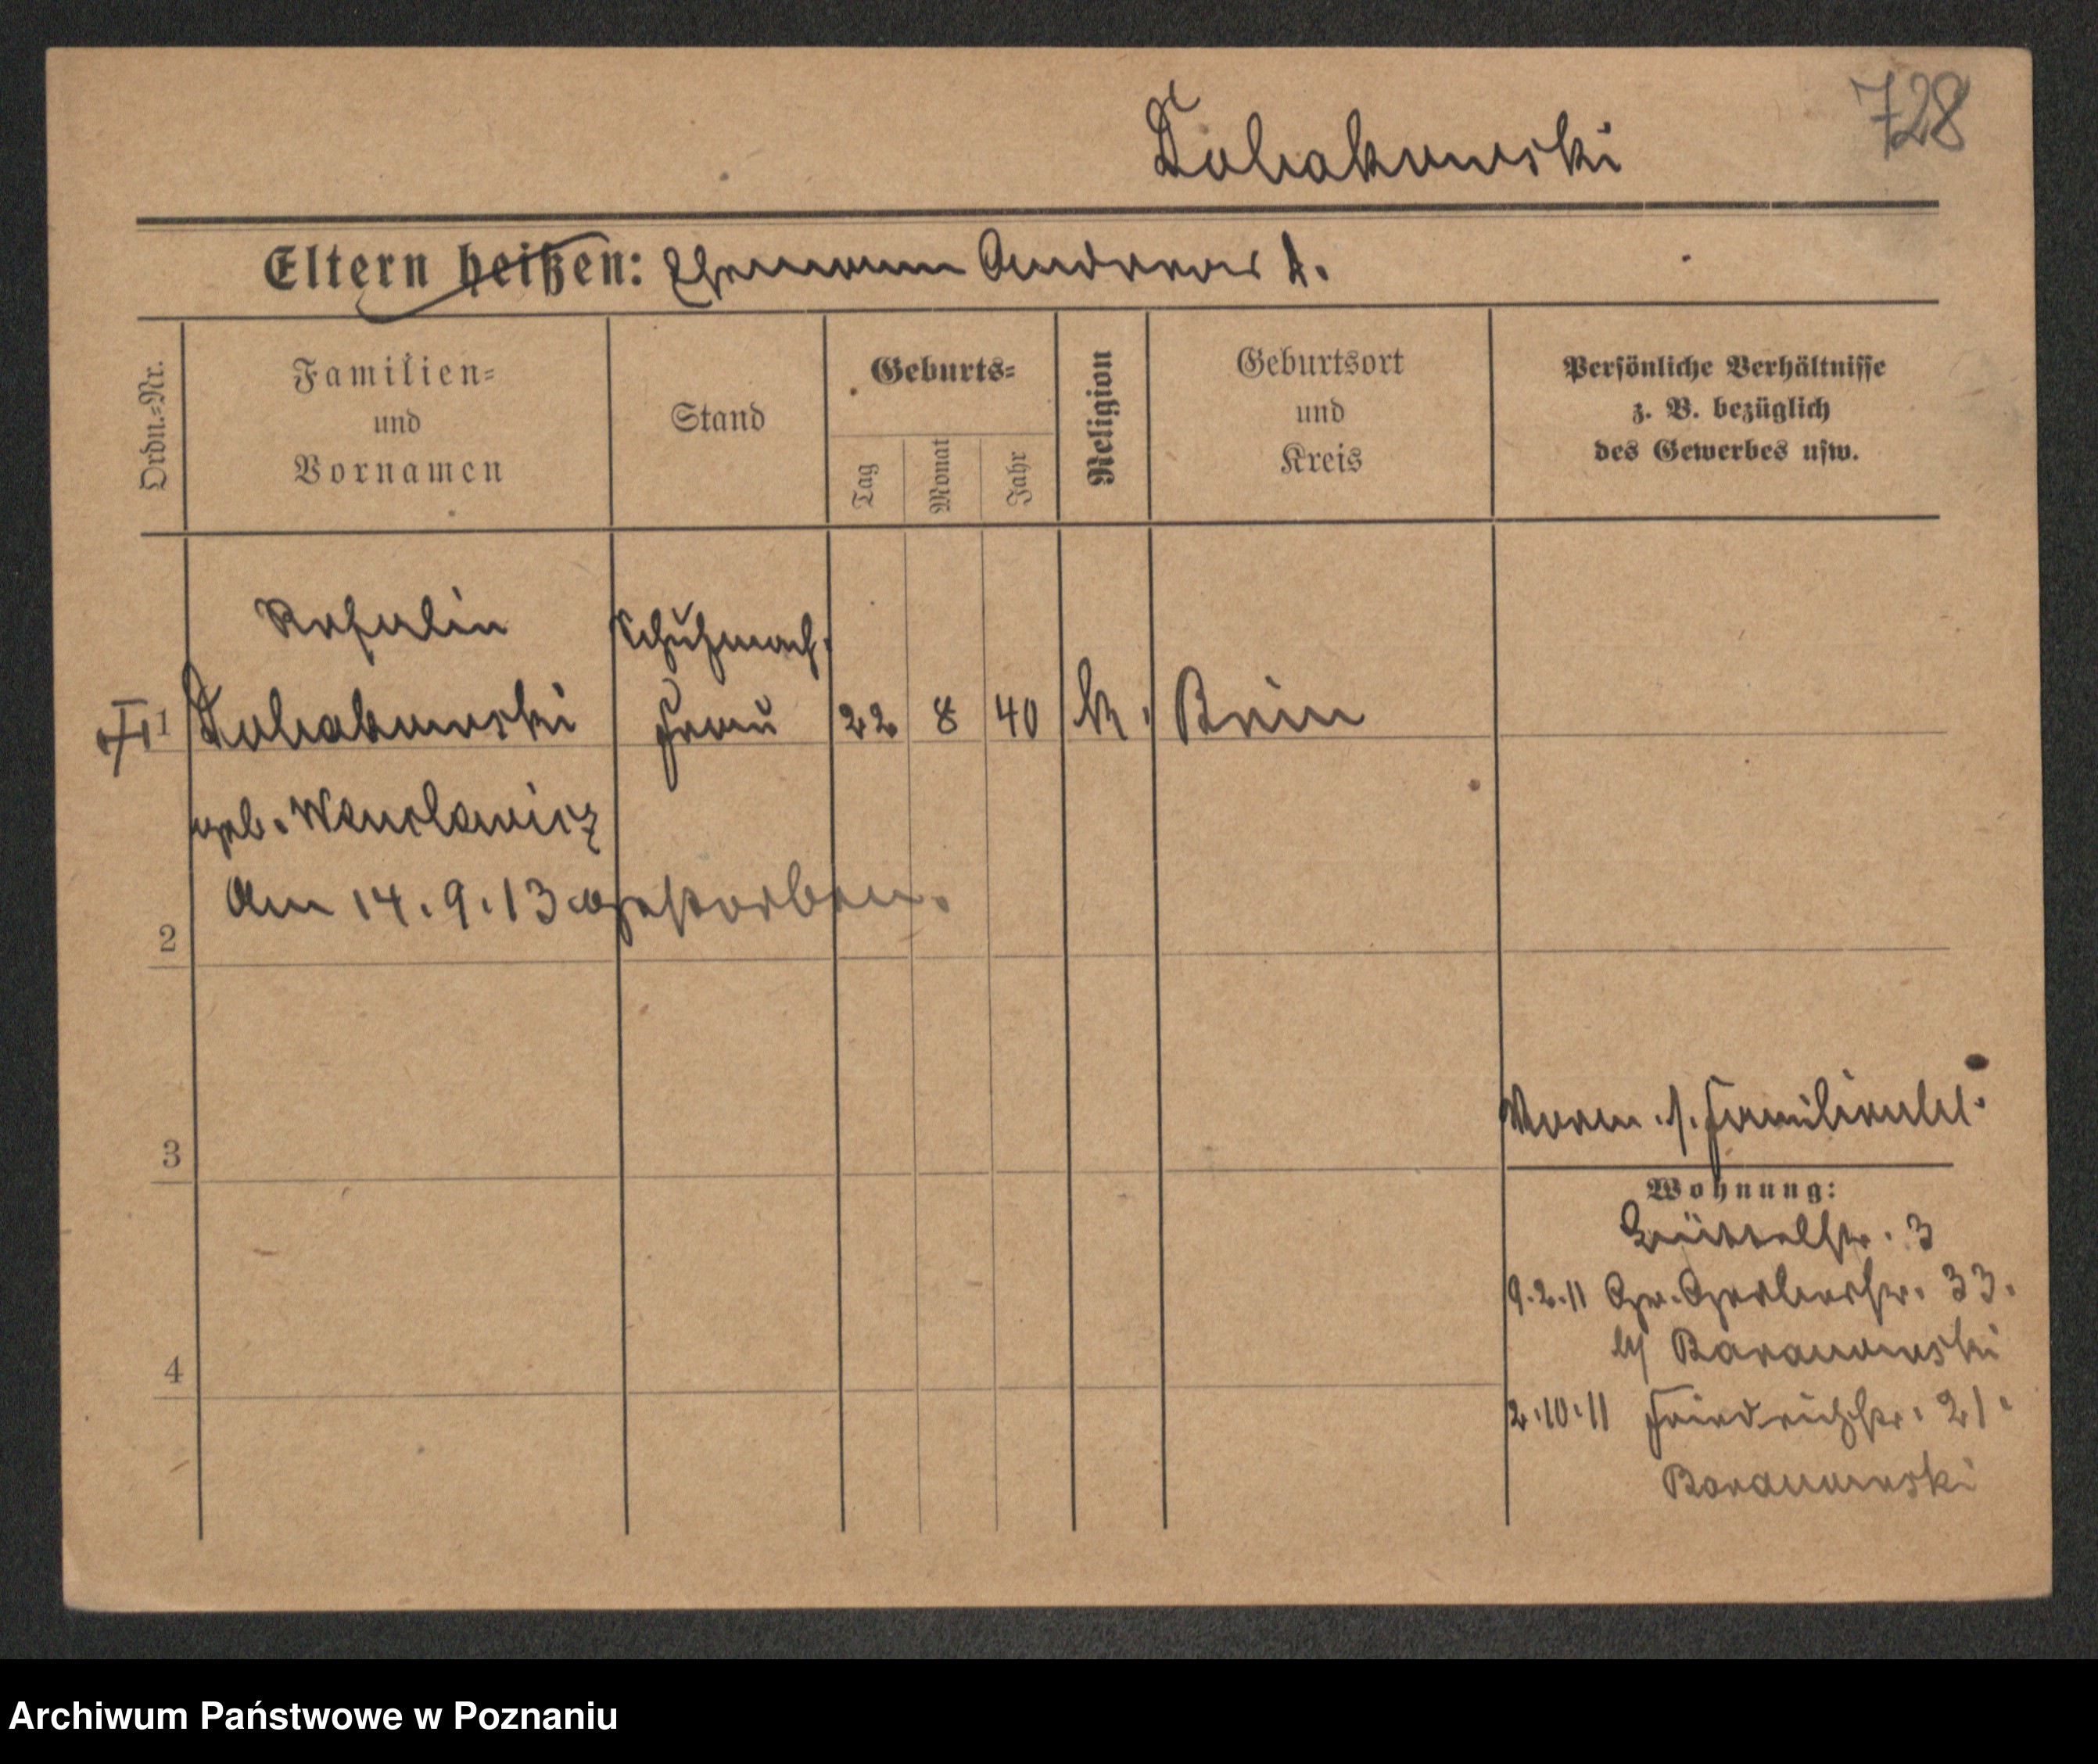 728
Eltern heißen: Ehemann Andreas t.
Ordn.=Nr.
Familien=
und
Vornamen
Stand
Geburts=
Tag
Monat
Jahr
Religion
Geburtsort
und
Kreis
Persönliche Verhältnisse
z. B. bezüglich
des Gewerbes usw.
Rosalie
Schuhmach.
1
Frau
22 8 40 k. Bnin
geb.
Am 14.9.13 gestorben.
2
3
Vorm. s. Familienbl.
Wohnung:
Büttelstr. 3
9.2.11 Gr. Gerberstr. 33.
b/ Baranowski
4
2.10.11 Friedrichstr. 21.
Baranowski
Archiwum Państwowe w Poznaniu